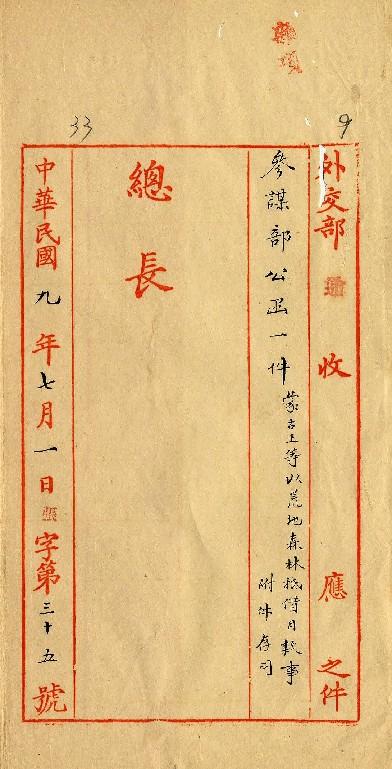 9
33
外交部 收 應 之件
參謀部公函一件
蒙古王等以荒地森林抵借日款事
附件存司
總長
中華民國九年七月一日 字第三十五號